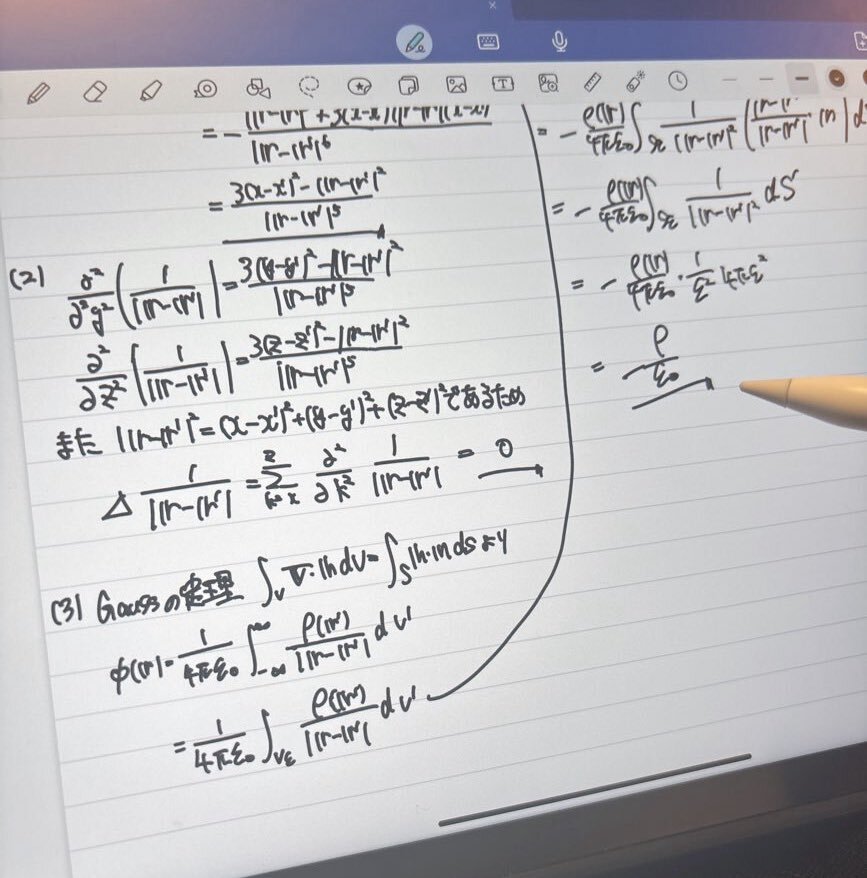 = - (|r-r'|³ + 3(x-x')|r-r'|(x-x')) / |r-r'|⁶
= (3(x-x')² - |r-r'|²) / |r-r'|⁵
(2) ∂²/∂²y² (1/|r-r'|) = (3(y-y')² - |r-r'|²) / |r-r'|⁵
∂²/∂z² (1/|r-r'|) = (3(z-z')² - |r-r'|²) / |r-r'|⁵
また |r-r'|² = (x-x')² + (y-y')² + (z-z')² であるため
Δ 1/|r-r'| = Σ_{k=x}^{z} ∂²/∂k² 1/|r-r'| = 0
(3) Gaussの定理 ∫_V ∇·h dv = ∫_S h·n ds より
φ(r) = 1/4πε₀ ∫_{-∞}^{∞} ρ(r')/|r-r'| dv'
= 1/4πε₀ ∫_{Vε} ρ(r')/|r-r'| dv'
= - ρ(r)/4πε₀ ∫_{Sε} 1/|r-r'|² (r-r'/|r-r'| · n) d
= - ρ(r)/4πε₀ ∫_{Sε} 1/|r-r'|² dS'
= - ρ(r)/4πε₀ · 1/ε² 4πε²
= - ρ/ε₀